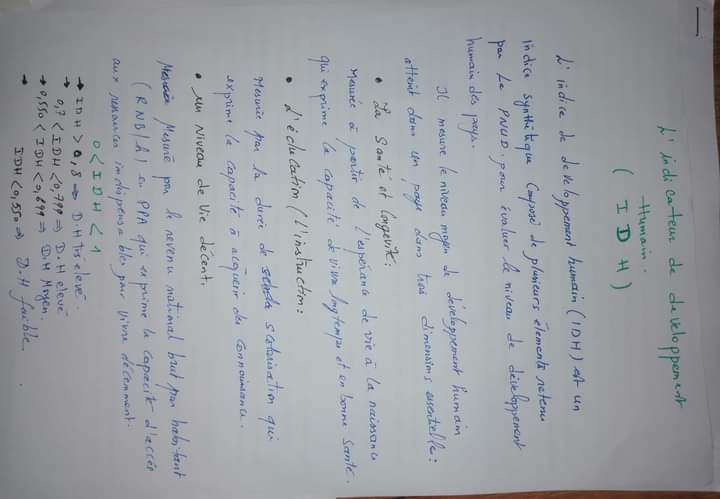 L'indicateur de developpement
Humain.
( I D H )
L'indice de developpement humain (IDH) est un
indice synthétique composé de plusieurs éléments retenu
par le PNUD. pour évaluer le niveau de développement
humain des pays.
Il mesure le niveau moyen de développement humain
atteint dans un pays dans trois dimensions essentielle:
• La Santé et longevité:
Mesurée à partir de l'espérance de vie à la naissance
qui exprime la capacité de vivre longtemps et en bonne santé.
• L'éducation (L'instruction:
Mesurée par la durée de scolarisation qui
exprime la capacité à acquérir des connaissance.
• un Niveau de Vie décent.
Mesuré par le revenu national brut par habitant
(RNB/h) en PPA qui exprime la capacité d'accés
aux ressources indispensables pour vivre décemment.
0 < I D H < 1
→ IDH > 0,8 ⇒ D.H trés elevé.
→ 0,7 < IDH < 0,799 ⇒ D.H elevé
→ 0,550 < IDH < 0,699 ⇒ D.H Moyen.
→ IDH < 0,550 ⇒ D.H faible.